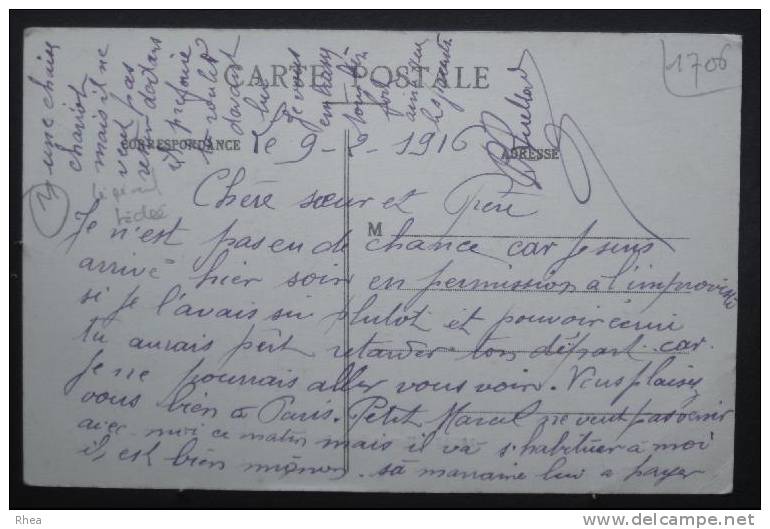 CARTE POSTALE
CORRESPONDANCE
ADRESSE
M
1706
le 9-2-1916
Chère sœur et Père
Je n'est pas eu de chance car je suis
arrivé hier soir en permission à l'improviste
si je l'avais su plutot et pouvoir écrire
tu aurais pêt retarder ton départ car
Je ne pourrais aller vous voir. Vous plaisez
vous bien à Paris. Petit Marcel ne veut pas venir
avec moi ce matin mais il va s'habituer à moi
il est bien mignon sa marraine lui a payer
une chaise
chariot
mais il ne
veut pas
rester dedans
il préfère
la rouler
devant
lui
Je vous
embrasse
tous bien
fort
ainsi que
les parents
Rhea
www.delcampe.net